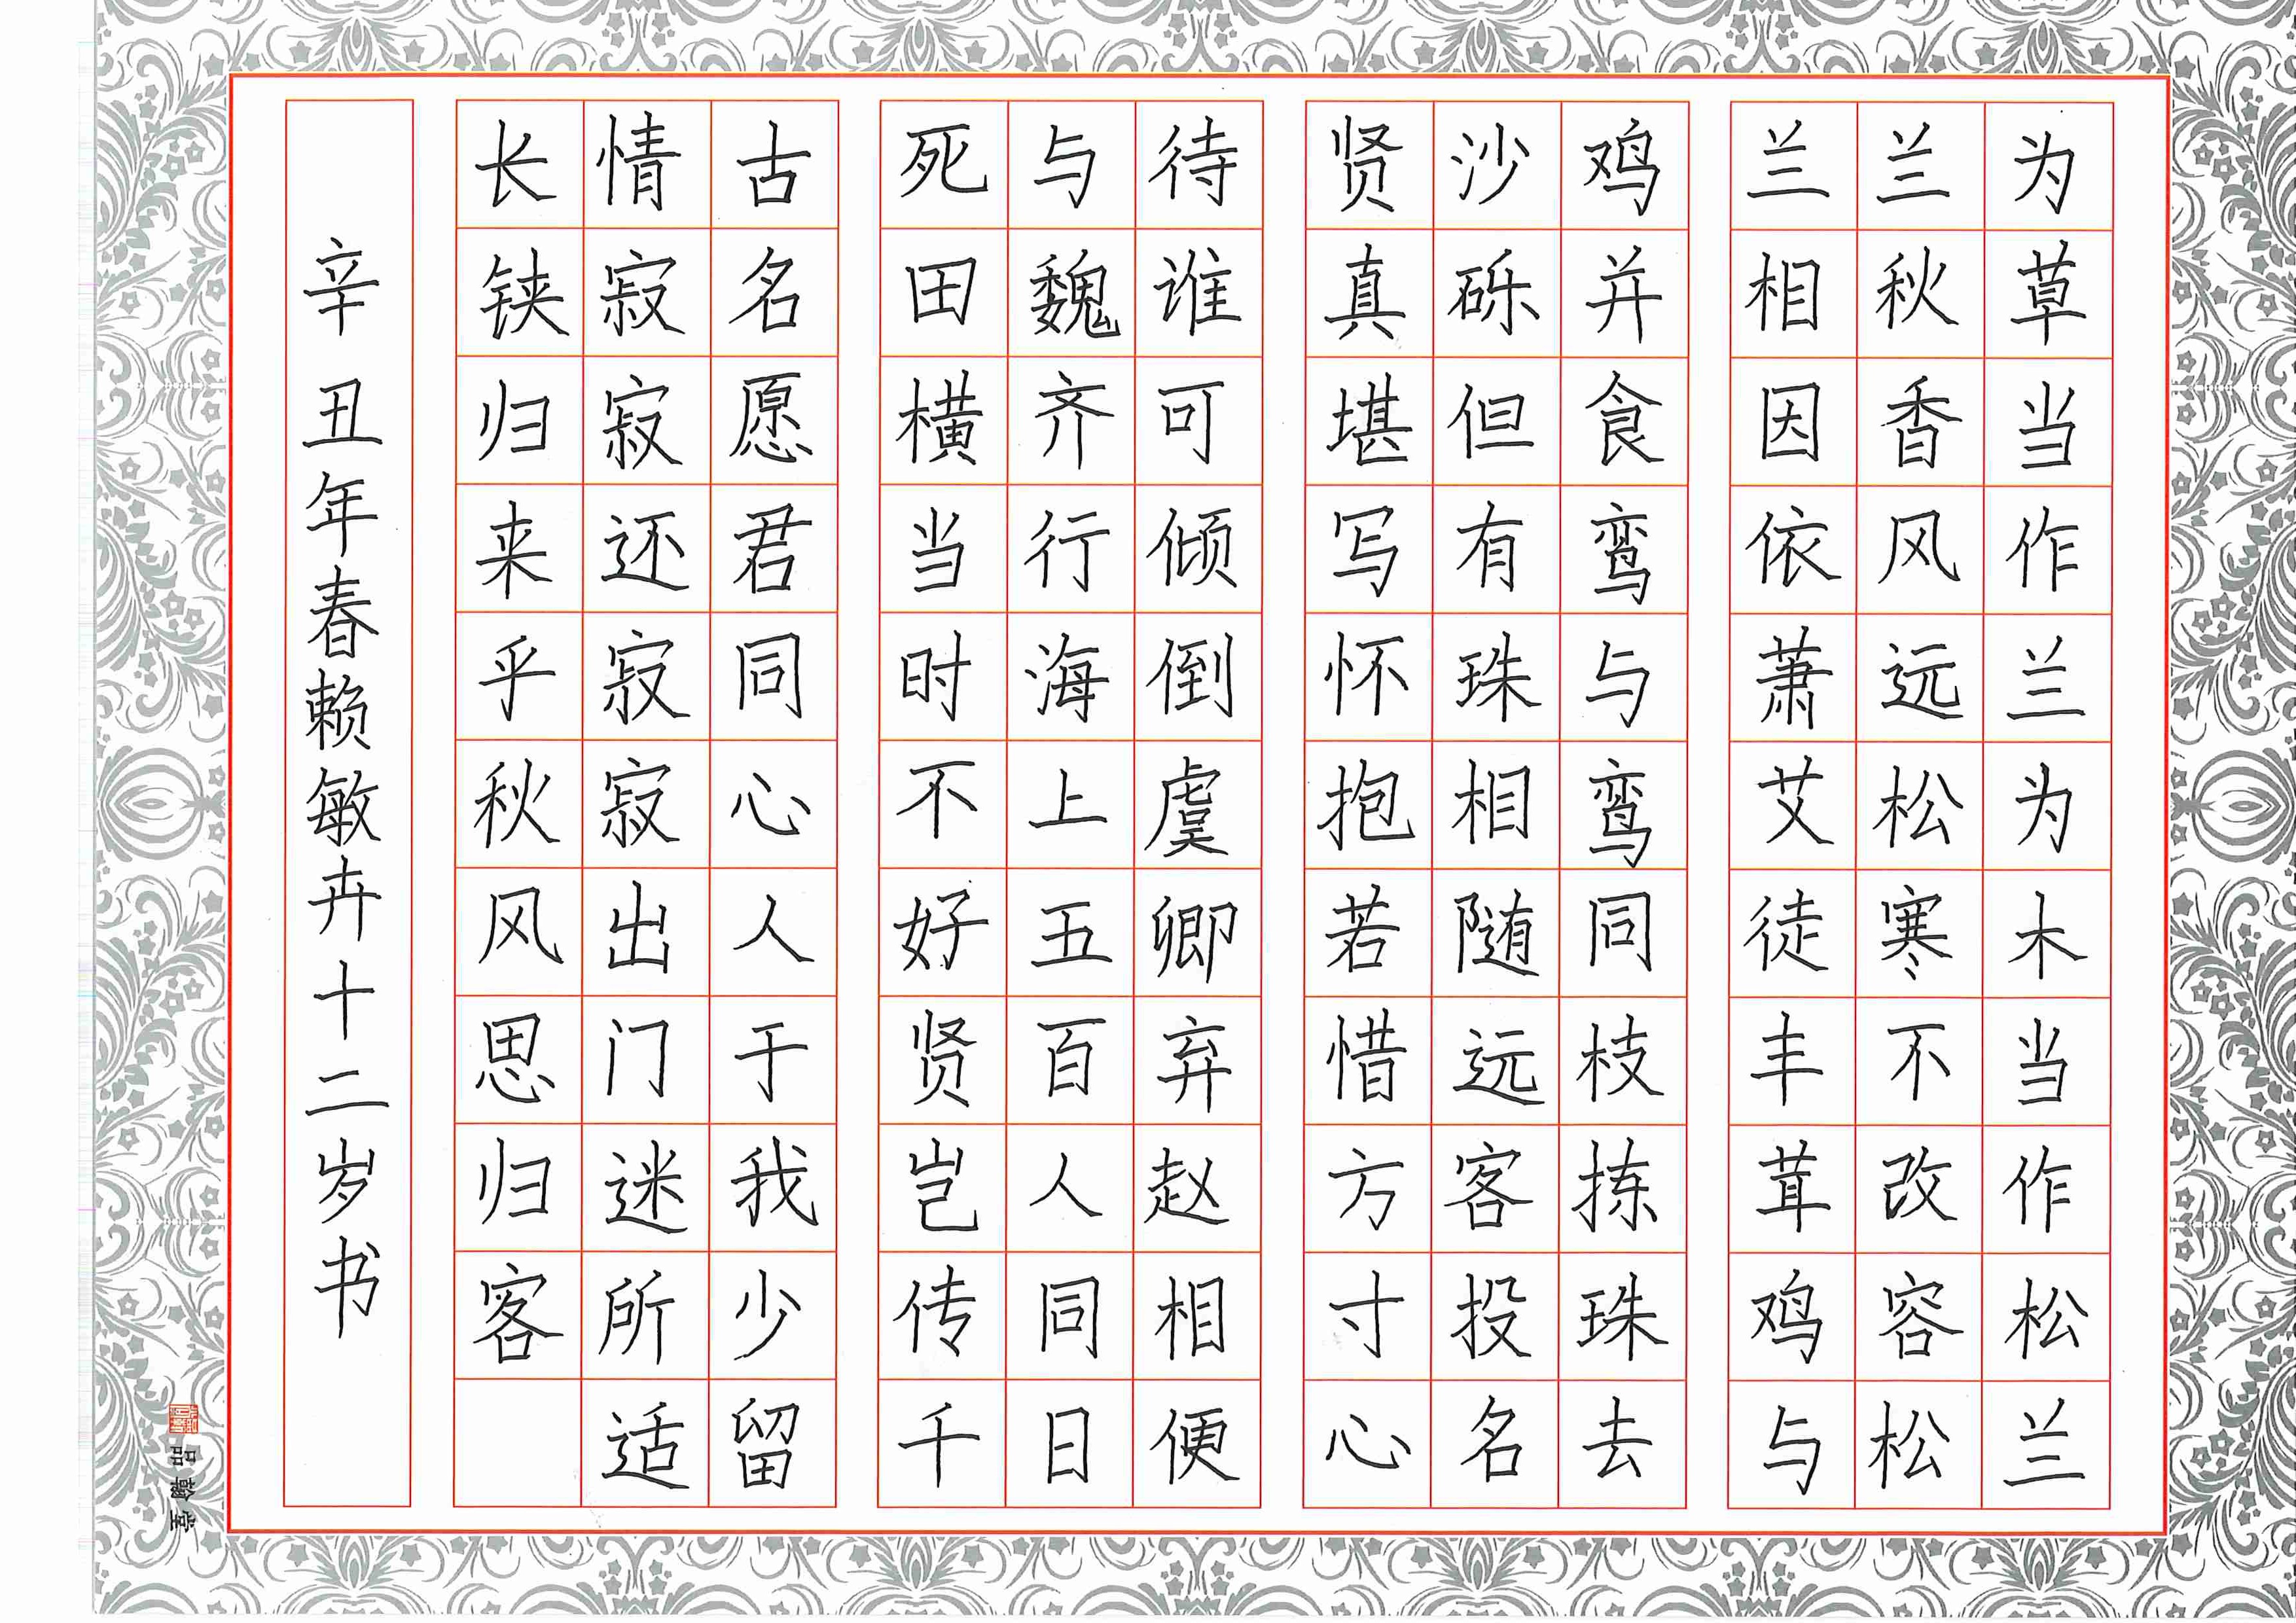 为草当作兰为木当作松兰
兰秋香风远松寒不改容松
兰相因依萧艾徒丰茸鸡与
鸡并食鸾与鸾同枝拣珠去
沙砾但有珠相随远客投名
贤真堪写怀抱若惜方寸心
待谁可倾倒虞卿弃赵相便
与魏齐行海上五百人同日
死田横当时不好贤岂传千
古名愿君同心人于我少留
情寂寂还寂寂出门迷所适
长铗归来乎秋风思归客
辛丑年春赖敏卉十二岁书
品翰堂